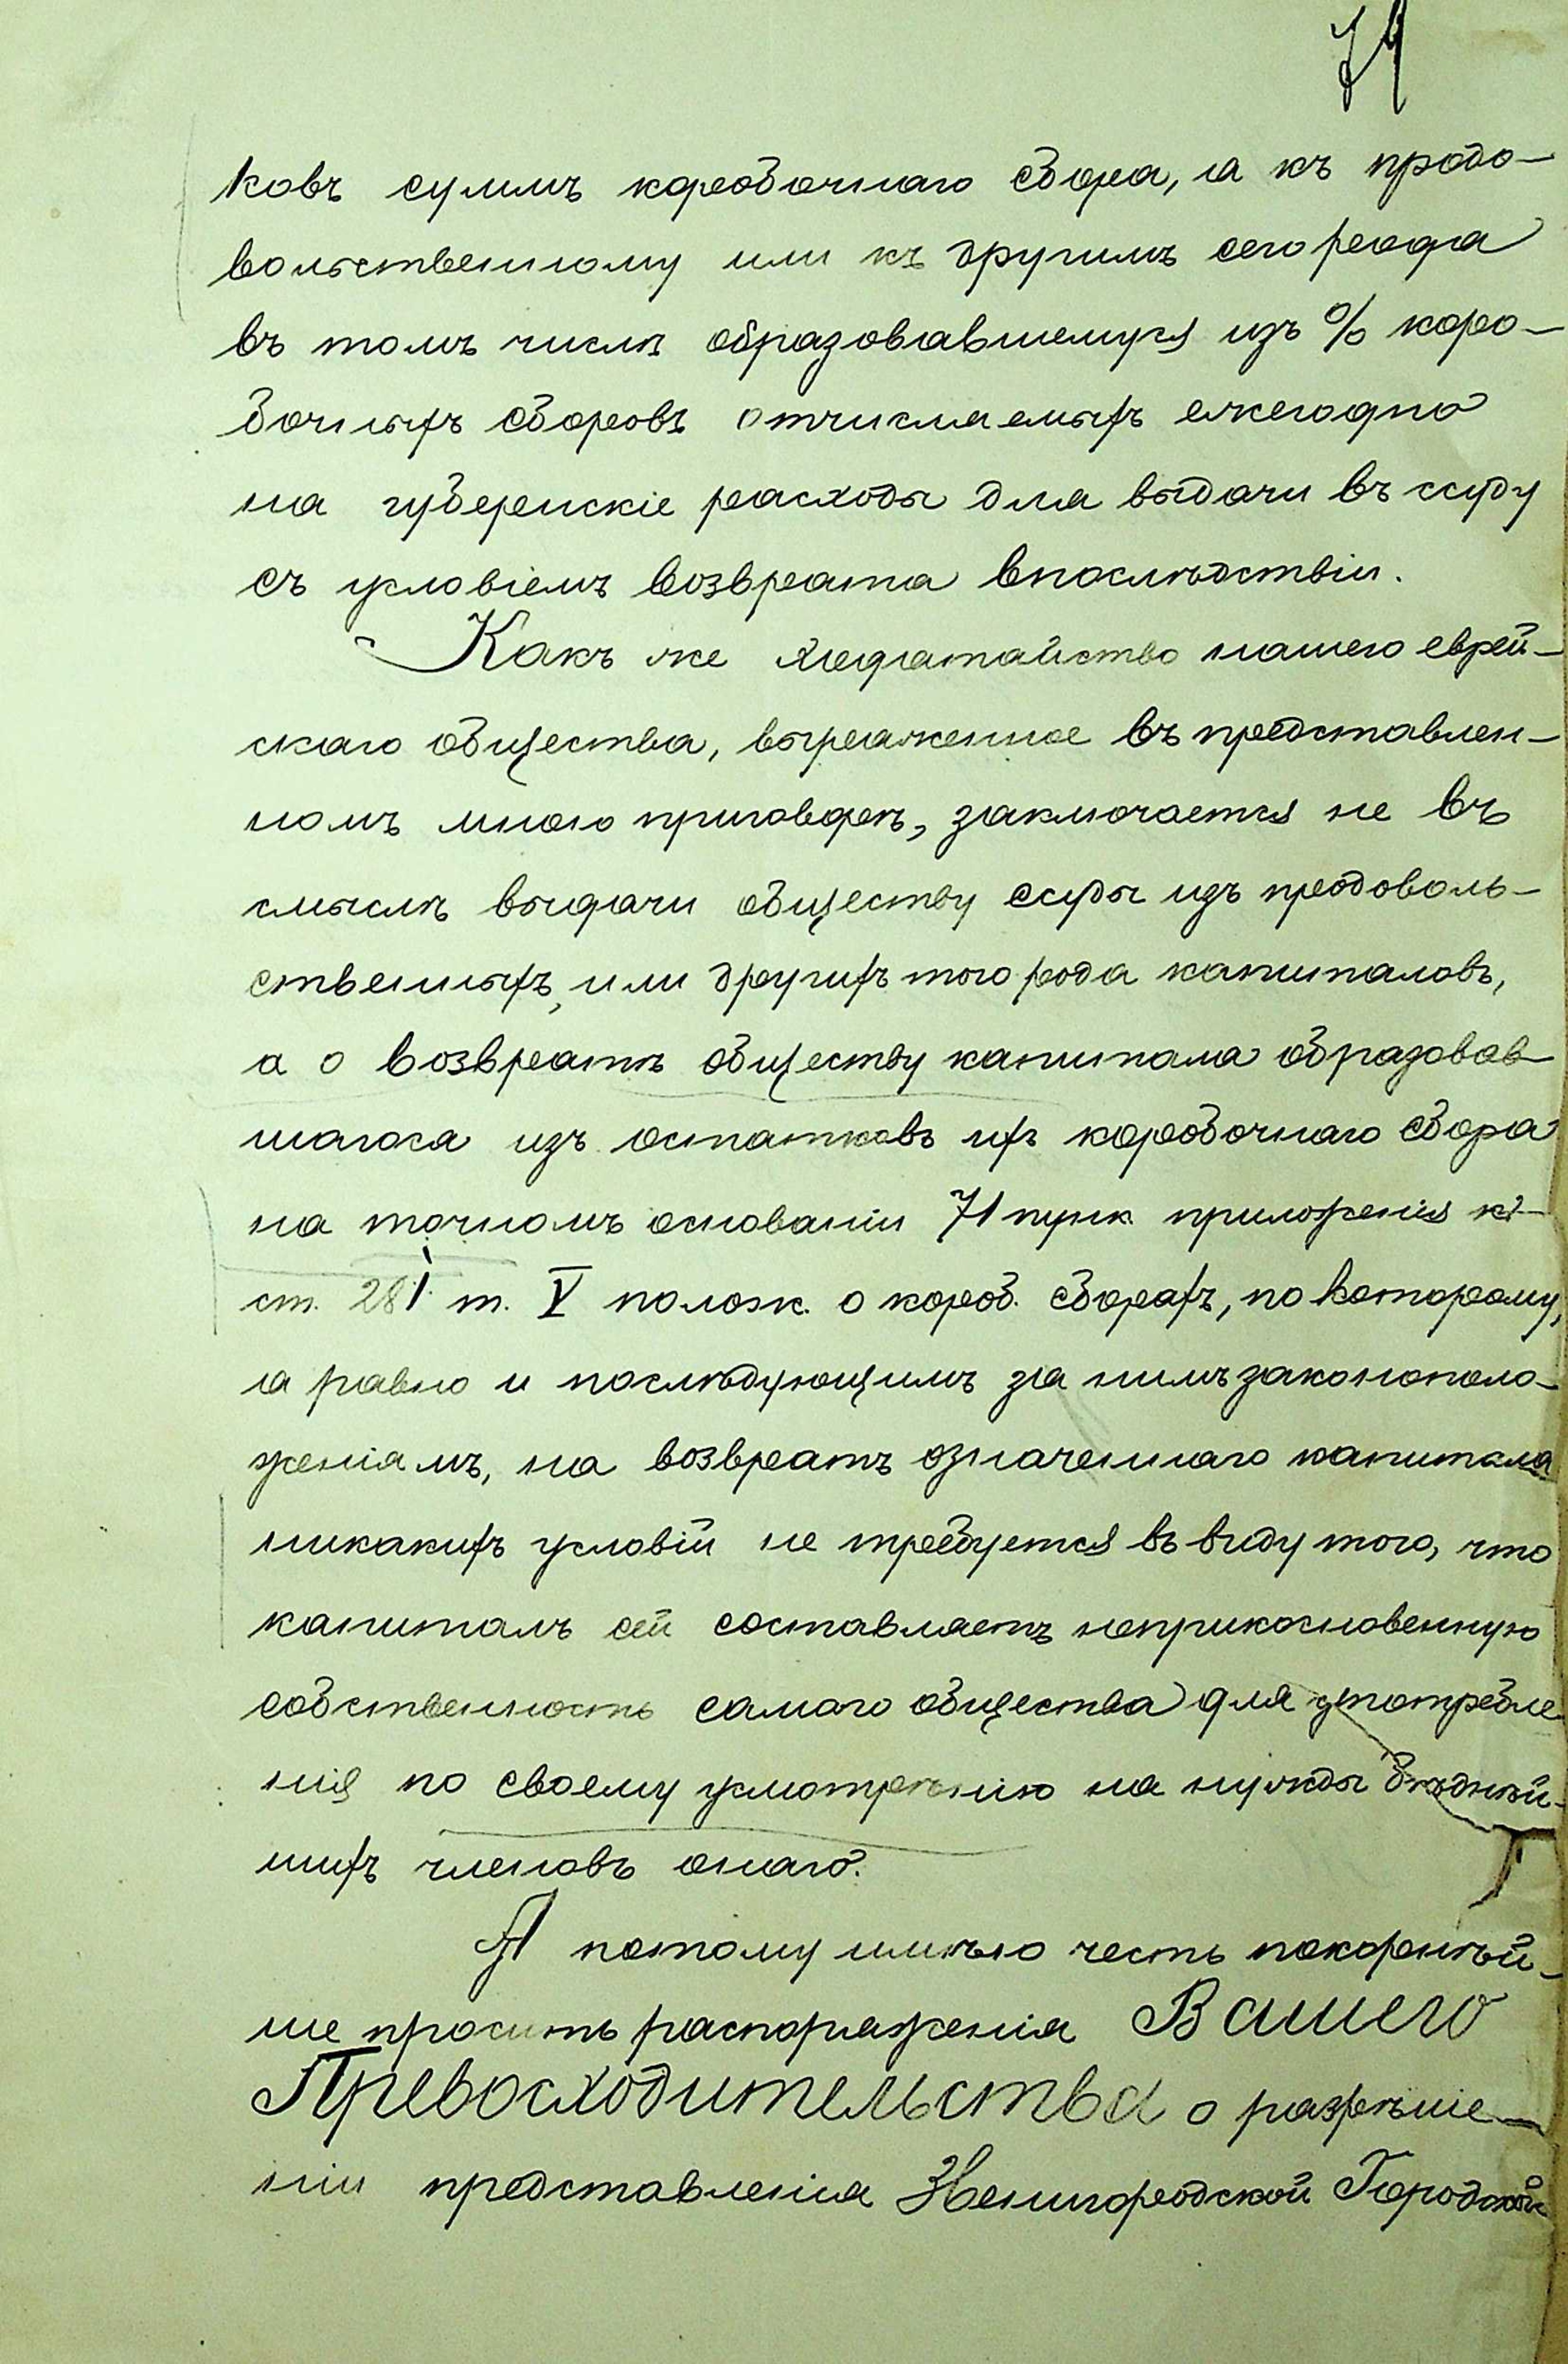 74
ковъ суммъ коробочнаго сбора, а къ продо-
вольственному или къ другимъ сего рода
въ томъ числѣ образовавшемуся изъ % коро-
бочныхъ сборовъ отчисляемыхъ ежегодно
на губернскіе расходы для выдачи въ ссуду
съ условіемъ возврата впослѣдствіи.
Какъ же ходатайство нашего еврей-
скаго общества, выраженное въ представлен-
номъ мною приговорѣ, заключается не въ
смыслѣ выдачи обществу ссуды изъ продоволь-
ственныхъ, или другихъ того рода капиталовъ,
а о возвратѣ обществу капитала образовав-
шагося изъ остатковъ ихъ коробочнаго сбора
на точномъ основаніи 71 пунк. приложенія къ
ст. 281 т. V полож. о короб. сборахъ, по которому,
а равно и послѣдующимъ за нимъ законополо-
женіямъ, на возвратъ означеннаго капитала
никакихъ условій не требуется въ виду того, что
капиталъ сей составляетъ неприкосновенную
собственность самаго общества для употребле-
нія по своему усмотрѣнію на нужды бѣднѣй-
шихъ членовъ онаго.
А потому имѣю честь покорнѣй-
ше просить распоряженія Вашего
Превосходительства о разрѣше-
ніи представленія Звенигородской Городской